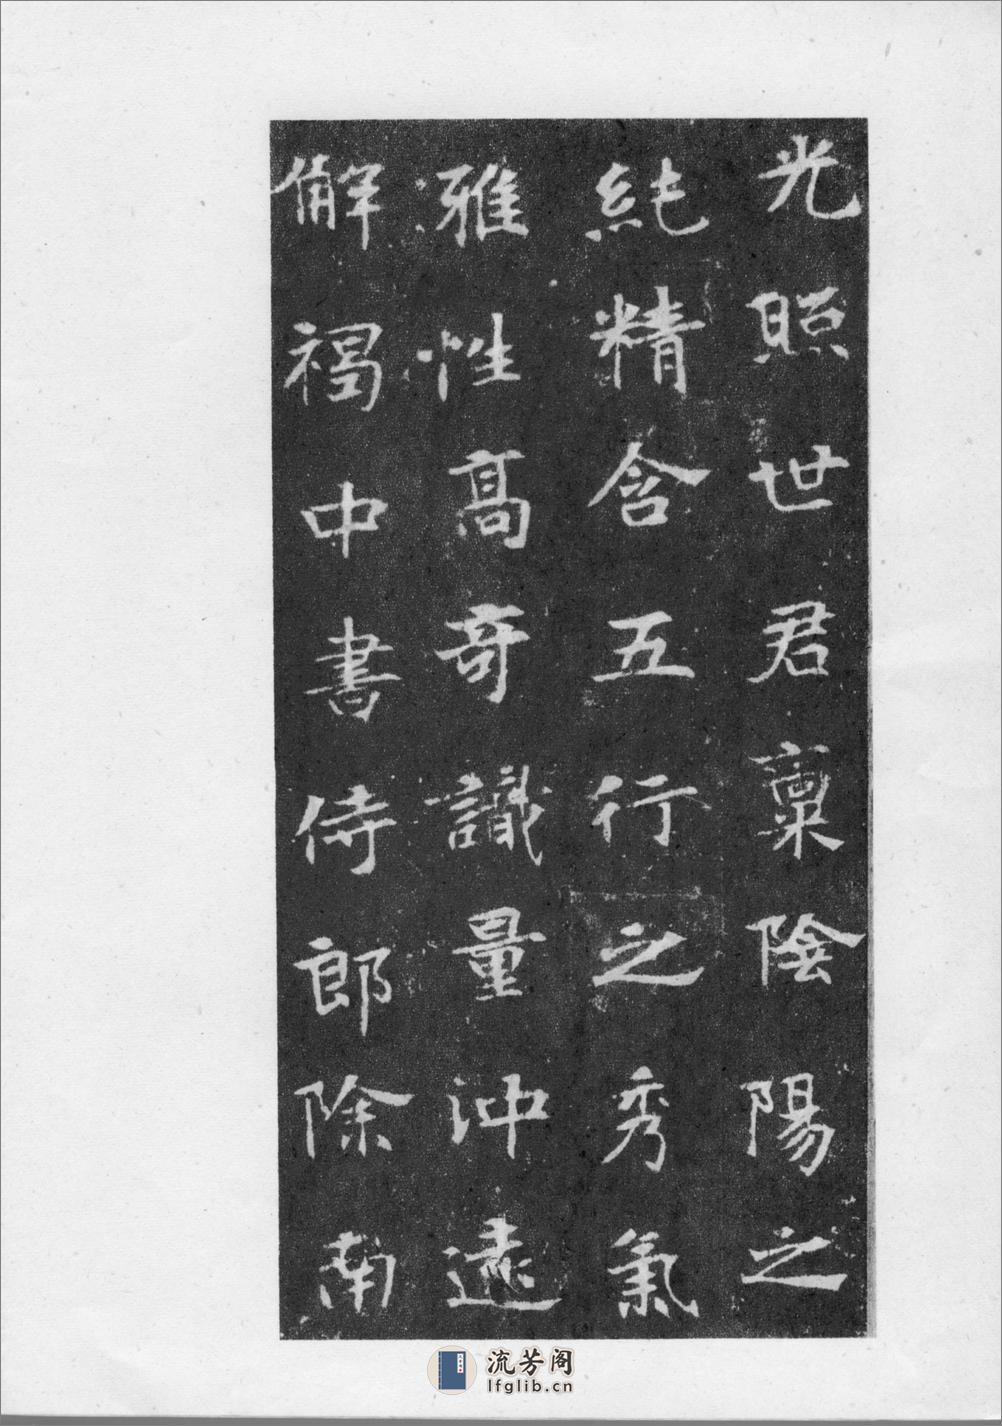 光照世君稟陰陽之
純精含五行之秀氣
雅性高奇識量沖遠
解褐中書侍郎除南
流芳阁
lfglib.cn